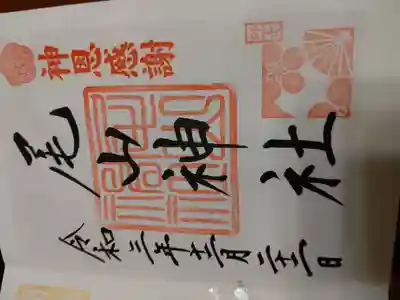 神恩感謝
尾山神社
令和三年十二月二十二日